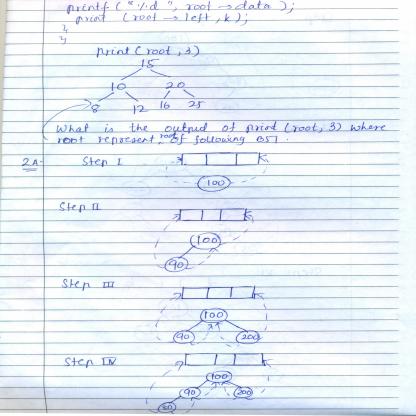 printf ("%d", root → data);
print (root → left, k);
}
}
print (root, 3)
15
10 20
8 12 16 25
What is the output of print (root, 3) where
root represent root of following BST.
2A- Step I
100
Step II
100
90
Step III
100
90 200
Step IV
100
90 200